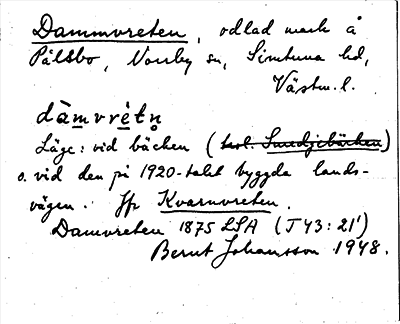 Dammvreten, odlad mark å
Pålsbo, Norrby sn, Simtuna hd,
Västm. l.
dàm̲vrètn̥
Läge: vid bäcken (trol. Smedjebäcken)
o. vid den på 1920-talet byggda lands-
vägen. Jfr Kvarnvreten.
Damvreten 1875 LSA (T 43: 21')
Bernt Johansson 1948.